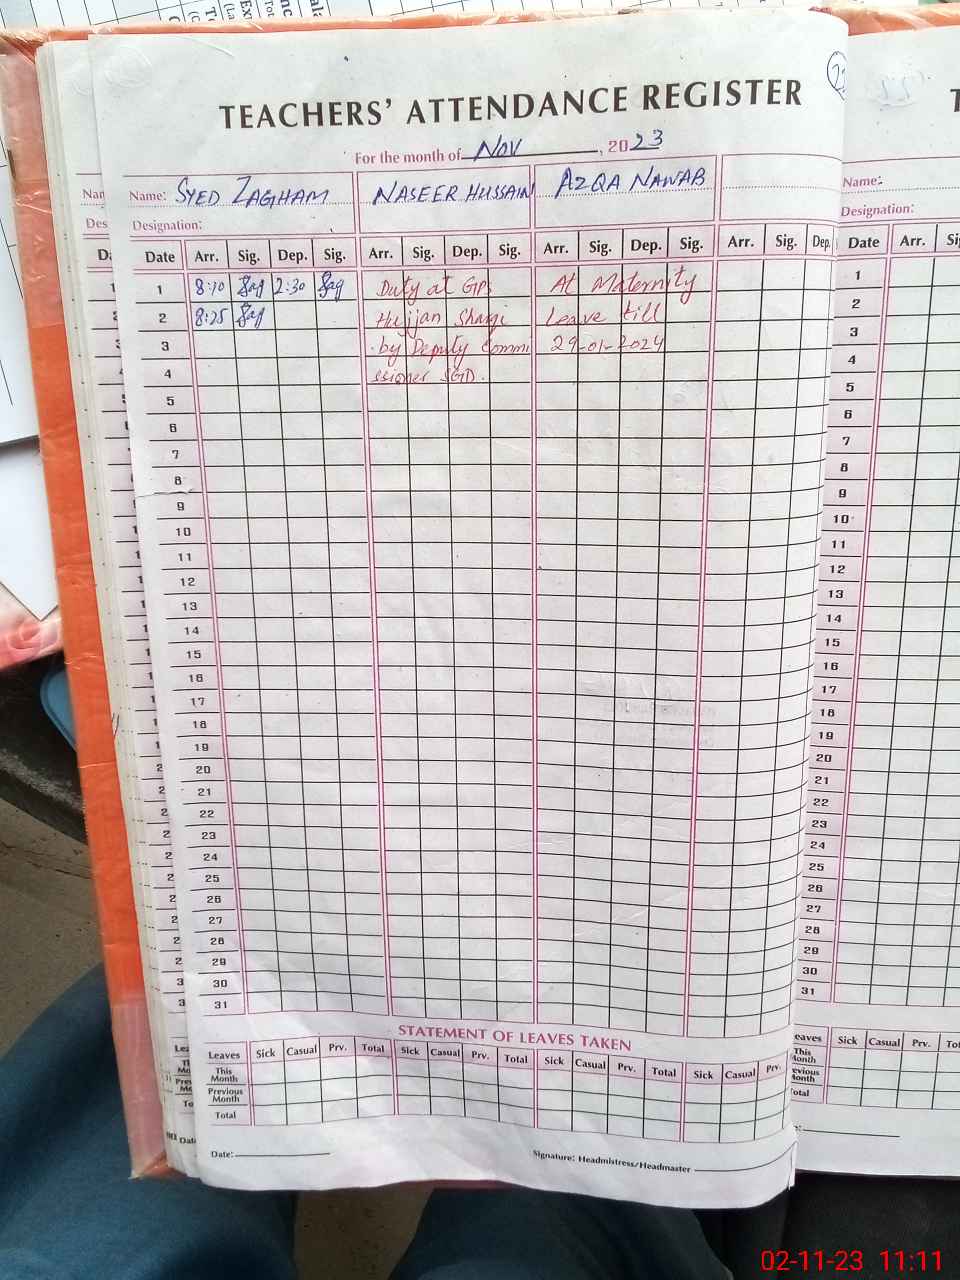 TEACHERS' ATTENDANCE REGISTER
For the month of Nov, 2023
Name: SYED ZAGHAM NASEER HUSSAIN AZQA NAWAB
Designation:
Date Arr. Sig. Dep. Sig. Arr. Sig. Dep. Sig. Arr. Sig. Dep. Sig. Arr. Sig. Dep.
1 8:10 2:30 Duty at At Maternity
2 8:25 Leave till
3 by Deputy Commi 29-01-2024
4 ssioner SGD.
5
6
7
8
9
10
11
12
13
14
15
16
17
18
19
20
21
22
23
24
25
26
27
28
29
30
31
STATEMENT OF LEAVES TAKEN
Leaves Sick Casual Prv. Total Sick Casual Prv. Total Sick Casual Prv. Total Sick Casual Prv.
This Month
Previous Month
Total
Date:
Signature: Headmistress/Headmaster
Name:
Designation:
Date Arr.
1
2
3
4
5
6
7
8
9
10
11
12
13
14
15
16
17
18
19
20
21
22
23
24
25
26
27
28
29
30
31
Sick Casual Prv.
02-11-23 11:11